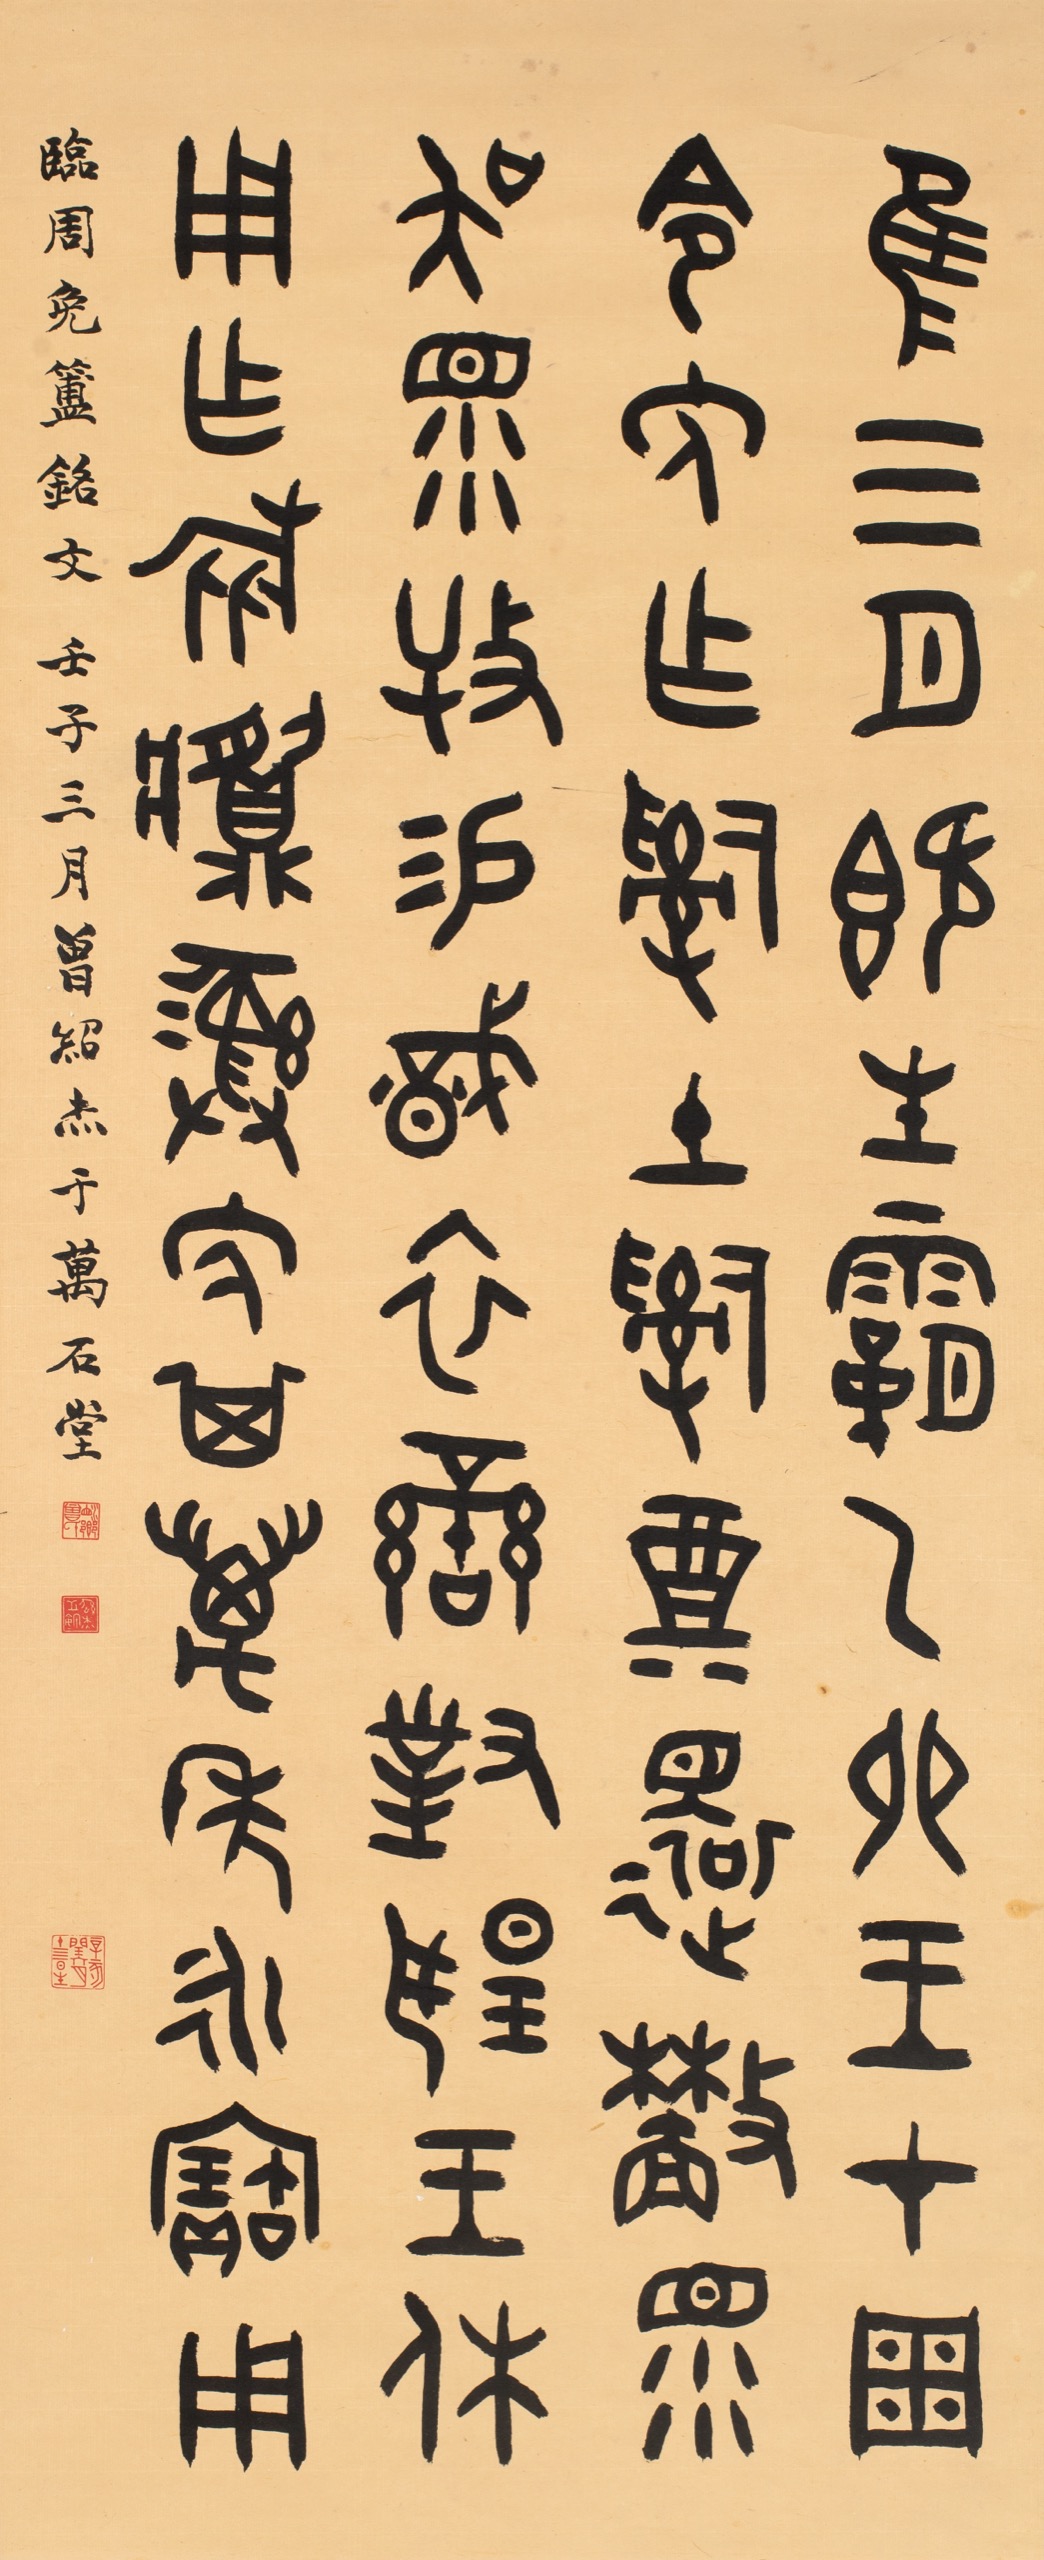 隹三月既生霸乙卯王才周
令免乍𤔲土𤔲奠還眔
吳眔牧易戠衣䜌對揚王休
用乍旅𩱧彝免其萬年永寶用
臨周免簠銘文 壬子三月曾紹杰于萬石堂